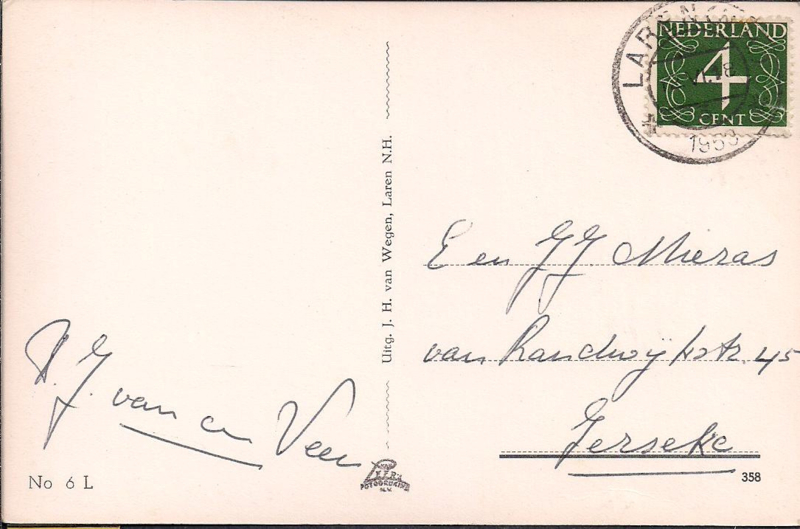 LAREN (NH)
1953
NEDERLAND
4
CENT
Uitg. J. H. van Wegen, Laren N.H.
E en J J. Mieras
van Randwijkstr. 45
Jerseke
J. van en Veen
No 6 L
FOTODRUK
N.V.
358